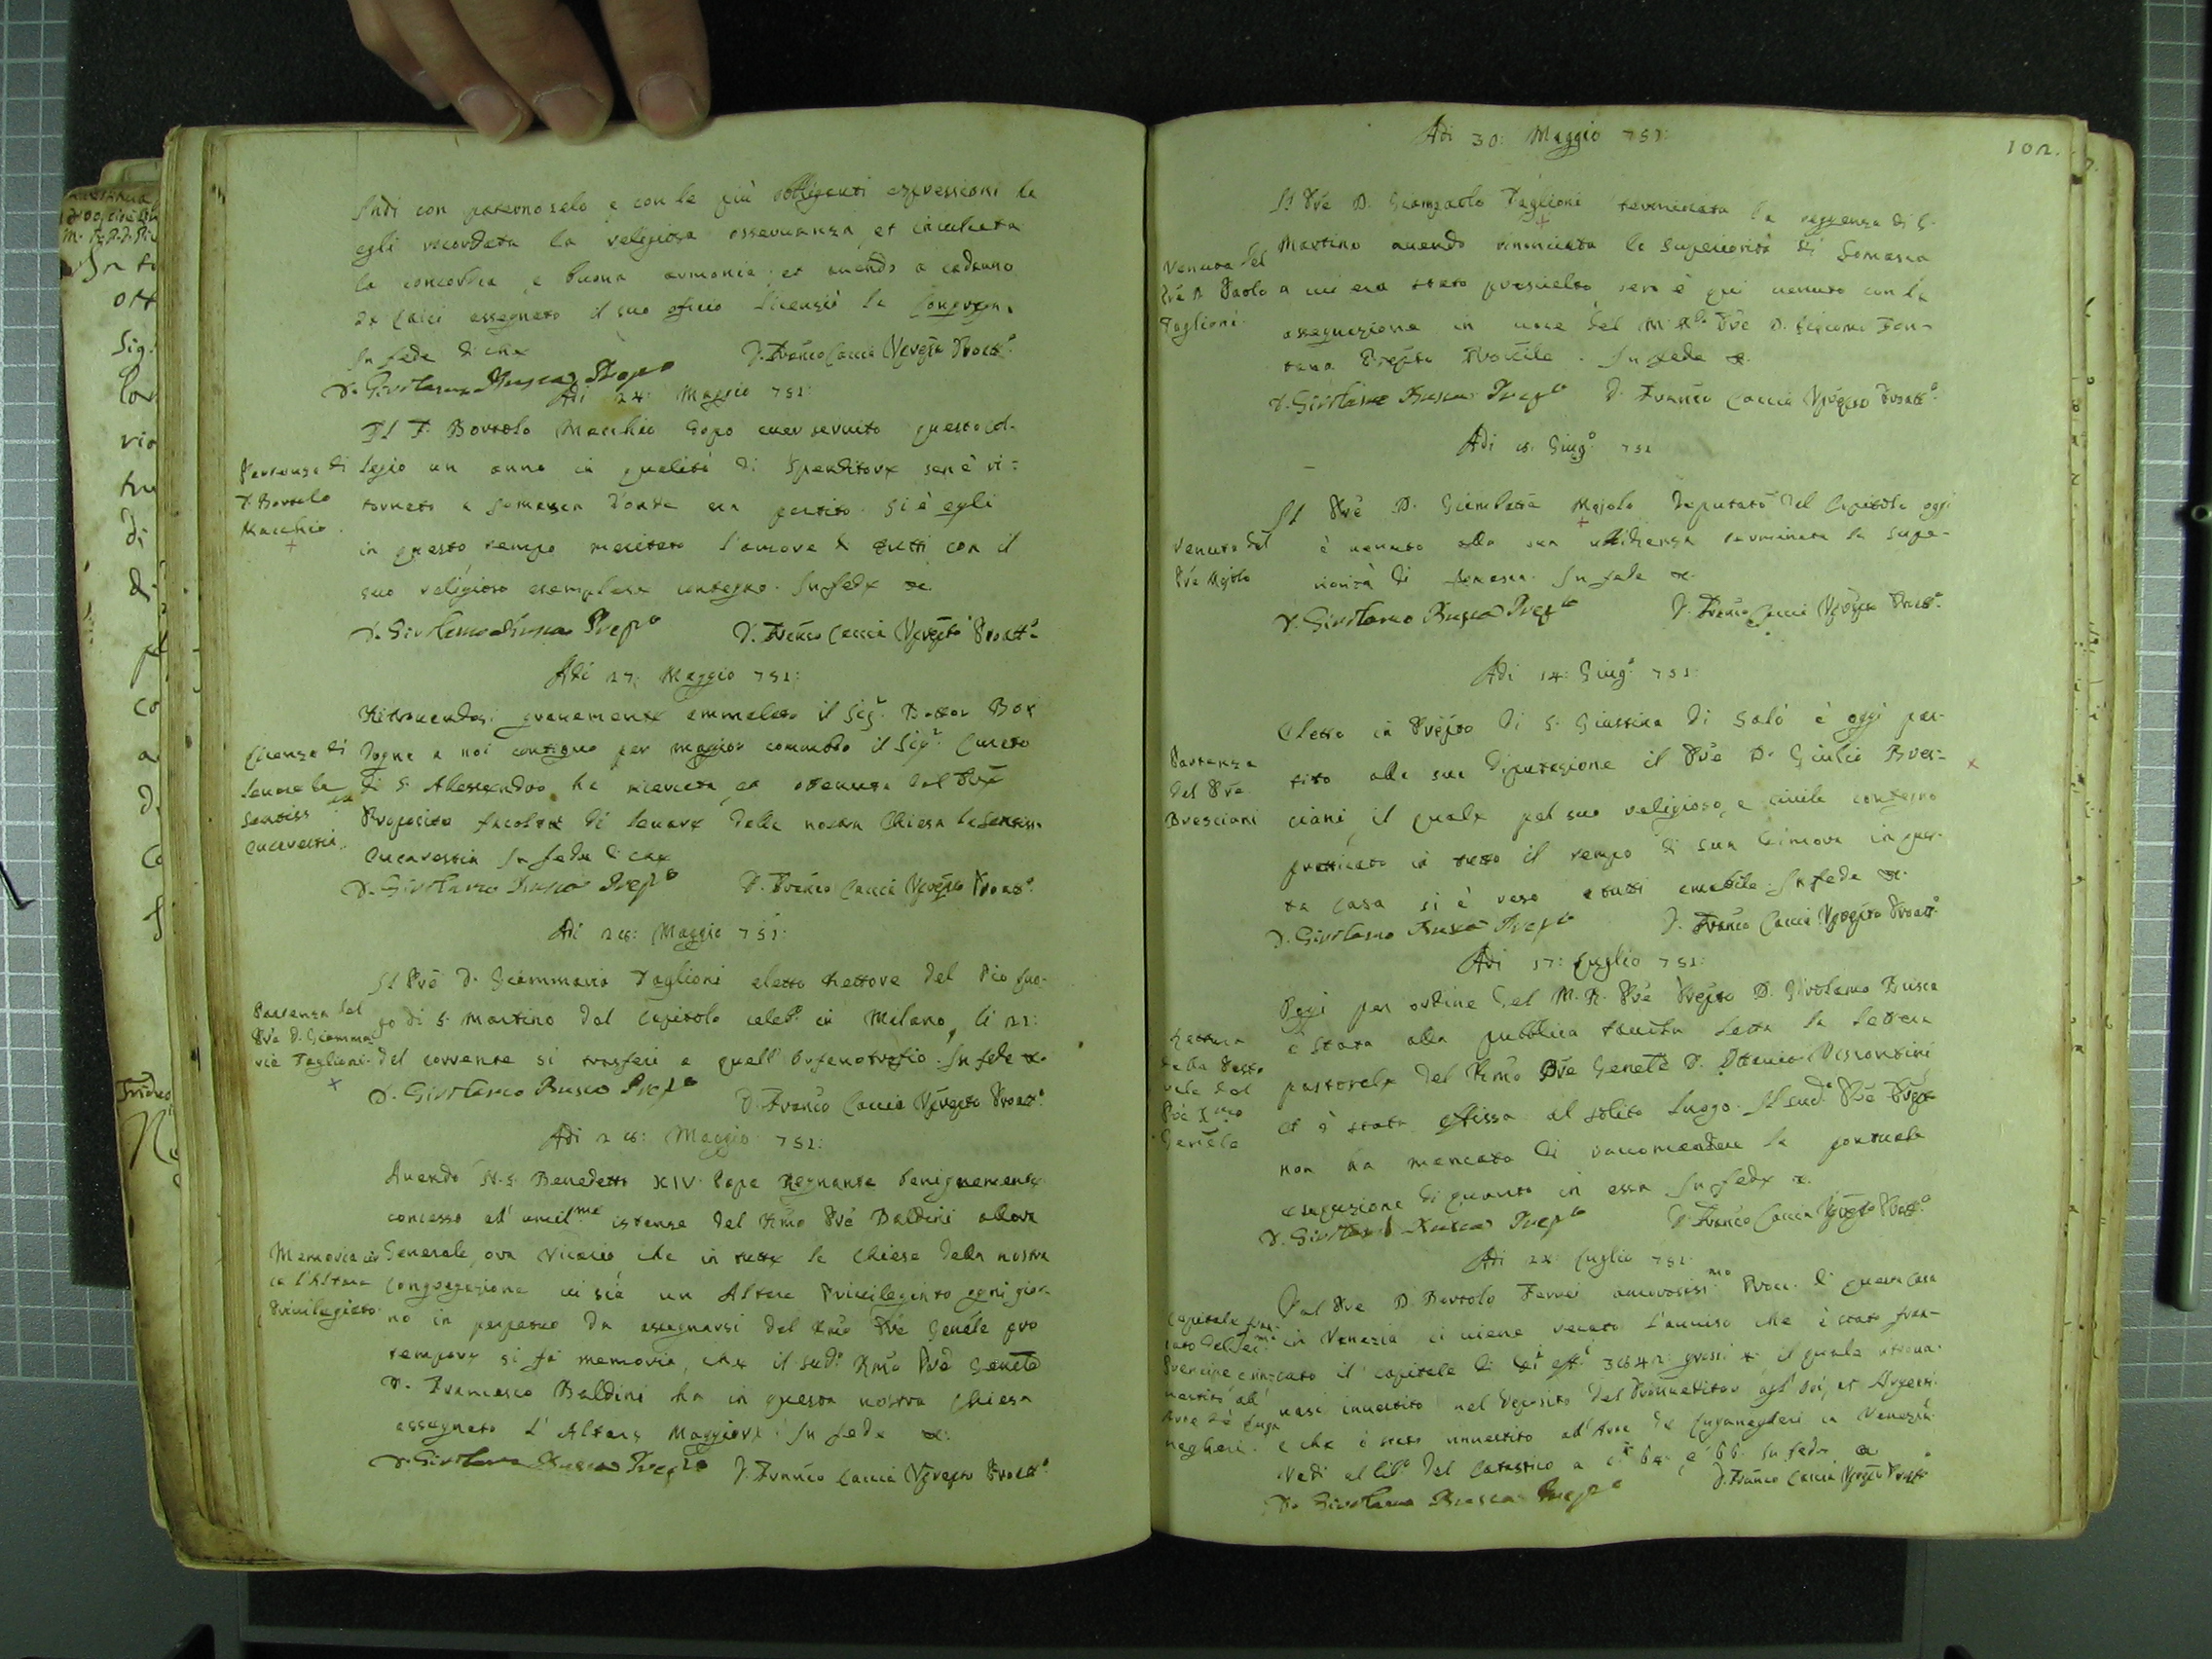 Indi con paterno zelo e con le più obbliganti espressioni ha
egli ricordata la religiosa osservanza, et inculcata
la concordia, e buona armonia et avendo a cadauno
assegnato il suo oficio licenziò la Congregne
In fede di che
D. Girolamo Rusca Prepto D. Franco Caccia Vprepto Proattrio
Adi 24: Maggio 751:
Partenza di
F. Bortolo
Macchio.
Il F. Bortolo Macchio dopo aver servito questo Col-
legio un anno in qualità di Spenditore sen è ri=
tornato a Somasca donde era partito. Si è egli
in questo tempo meritato l'amore di tutti con il
suo religioso esemplare contegno. In fede &c.
D. Girolamo Rusca Prepto D. Franco Caccia Vprepto Proatto
Adi 27: Maggio 751:
Licenza di
levare la
Santiss
Eucarestia.
Ritrovandosi gravemente ammalato il Sigr. Dottor Bor
dogna a noi contiguo per maggior commodo il Sigr. Curato
di S. Alessandro ha ricercata, ed ottenuta dal Pre
Preposito facoltà di levare dalla nostra Chiesa la Santiss.
Eucarestia In fede di che
D. Girolamo Rusca Prepto D. Franco Caccia Vprepto Proatto
Adi 28: Maggio 751:
Partenza del
Pre D. Giamma
ria Taglioni.
Il Pre D. Giammaria Taglioni eletto Rettore del Pio luo-
go di S. Martino dal Capitolo celebto in Milano, li 21:
del corrente si trasferì a quell' Orfanotrofio. In fede &c.
D. Girolamo Rusca Prepto D. Franco Caccia Vprepto Proatto
Adi 28: Maggio 751:
Memoria cir
ca l'Altare
Privilegiato
Avendo N. S. Benedetto XIV. Papa Regnante benignamente
concesso all' umilma istanza del Rmo Pre Baldini allora
Generale, ora Vicario che in tutte le Chiese della nostra
Congregazione vi sia un Altare Privilegiato ogni gior-
no in perpetuo da assegnarsi dal Rmo Pre Genele pro
tempore si fa memoria, che il sudo Rmo Pre Genele
D. Francesco Baldini ha in questa nostra Chiesa
assegnato l'Altare Maggiore. In fede &c:
D. Girolamo Rusca Prepto D. Franco Caccia Vprepto Proatto
102.
Adi 30: Maggio 751:
Venuta del
Pre D. Paolo
Taglioni.
Il Pre D. Giampaolo Taglioni terminata la reggenza di S.
Martino avendo rinunciata la Superiorità di Somasca
a cui era stato prescielto sen è qui venuto con la
assegnazione in voce del M. Rdo Pre D. Giacomo Fon-
tana Prepto Provcile. In fede &c.
D. Girolamo Rusca Prepto D. Franco Caccia Vprepto Proatto
Adi 8: Giugo 751
Venuta del
Pre Majolo
Il Pre D. Giambatta Majolo deputato dal Capitolo oggi
è venuto alla sua ubbidienza terminata la Supe-
riorità di Somasca. In fede &c.
D. Girolamo Rusca Prepto D. Franco Caccia Vprepto Proatto
Adi 14: Giugo 751:
Partenza
del Pre
Bresciani
Eletto in Prepto di S. Giustina di Salò è oggi par-
tito alla sua diputazione il Pre D. Giulio Bres=
ciani, il quale pel suo religioso, e civile contegno
pratticato in tutto il tempo di sua dimora in ques-
ta Casa si è reso a tutti amabile. In fede &c.
D. Girolamo Rusca Prepto D. Franco Caccia Vprepto Proatto
Adi 17: Luglio 751:
Lettura
della Pasto
rale del
Pre Rmo
Genele
Oggi per ordine del M. R. Pre Prepto D. Girolamo Rusca
è stata alla pubblica tavola letta la lettera
pastorale del Rmo Pre Genele D. Ottavio Visconti
et è stata affissa al solito luogo. Il sudo Pre Prepto
non ha mancato di raccomandare la puntuale
esecuzione di quanto in essa In fede &c.
D. Girolamo Rusca Prepto D. Franco Caccia Vprepto Proatto
Adi 24: Luglio 751:
Capitale fran-
cato dal Sermo
Prencipe e rin-
vestito all'
Arte de Luga
negheri.
Dal Pre D. Bortolo Ferrei amorosissmo Procr. di questa Casa
in Venezia ci viene recato l'avviso che è stato fran-
cato il capitale di Dti effi 3842: grossi il quale ritrova-
vasi investito nel Deposito del Proveditor agl' Ori, et Argenti
e che è stato rinvestito all' Arte de Luganegheri in Venezia
Vedi al libo del Catastico a cte 64: e 66. In fede &c
D. Girolamo Rusca Prepto D. Franco Caccia Vprepto Proatto